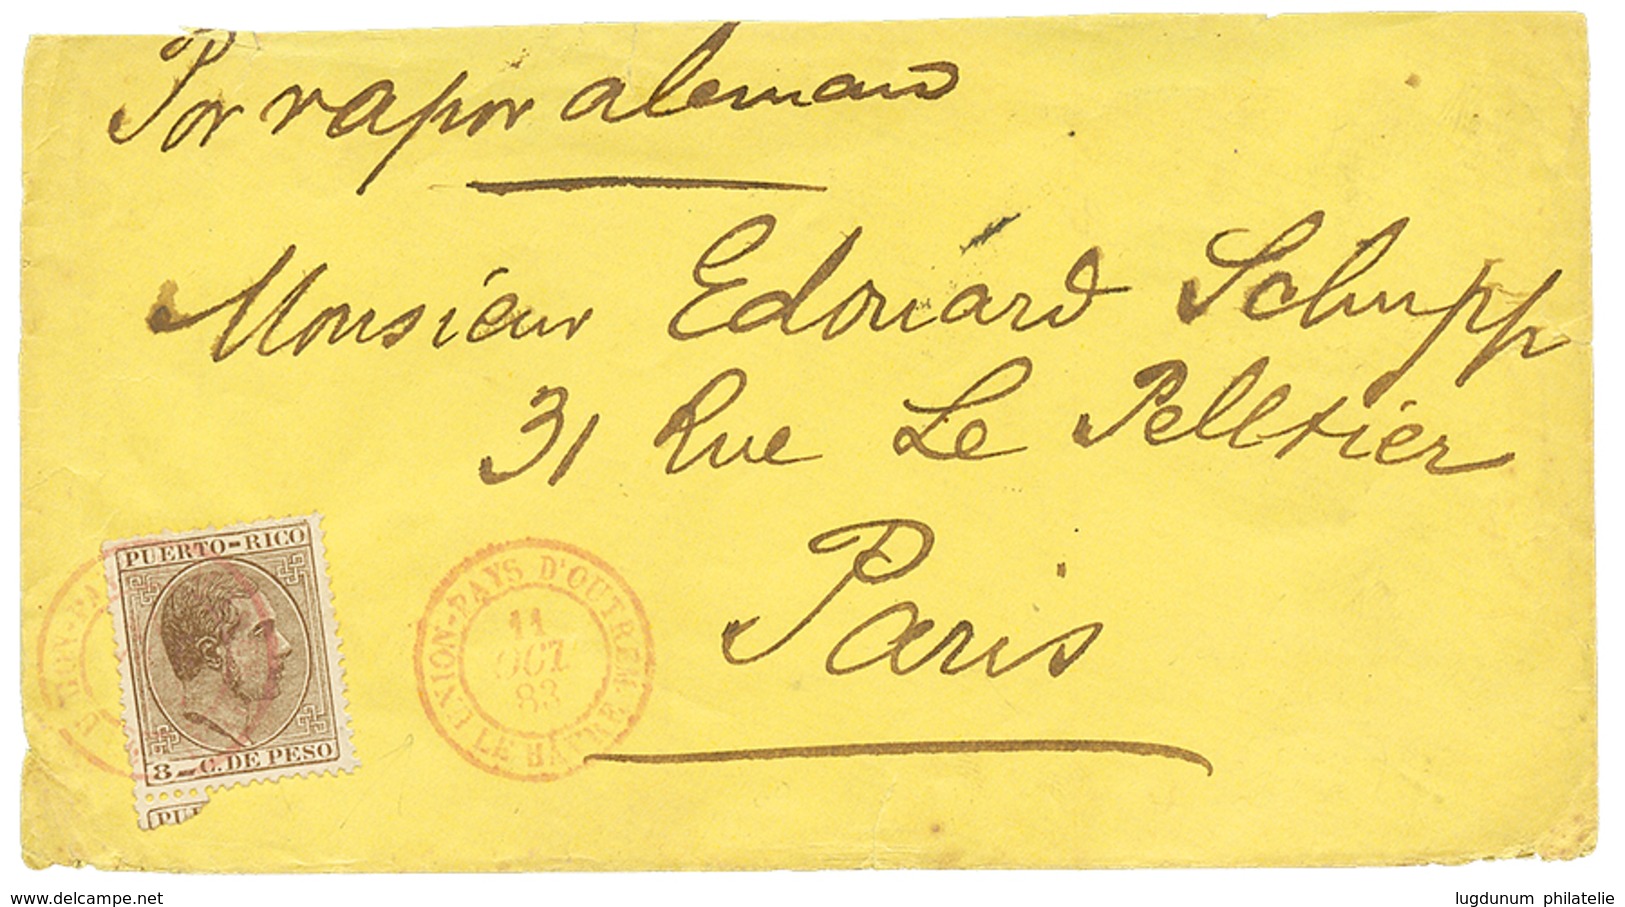 Por vapor aleman
Monsieur Edouard Schupp
31 Rue Le Pelletier
Paris
PUERTO-RICO
8 C. DE PESO
PU
UNION-PAYS D'OUTREM
11
OCT
83
LE HAVRE
www.delcampe.net
lugdunum philatelie